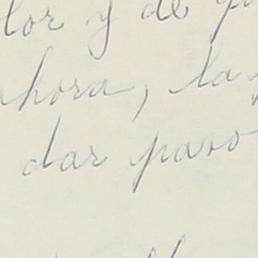 lor y de
ahora, la
dar paso